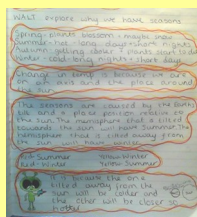 WALT explore why we have seasons
Spring - plants blossom + maybe snow
Summer - hot - long days + short nights
Autumn - getting colder + plants start to die
Winter - cold - long nights + short days
Change in temp is because we are
on an axis and the place around
the sun.
The seasons are caused by the Earths
tilt and a place position relative to
the sun. The hemisphere that is tilted
towards the sun will have Summer. The
hemisphere that is tilted away from
the sun will have winter.
Red Summer Yellow Winter
Red Winter Yellow Summer
It is because the one
tilted away from the
sun will be colder and
the other will be closer so
hotter